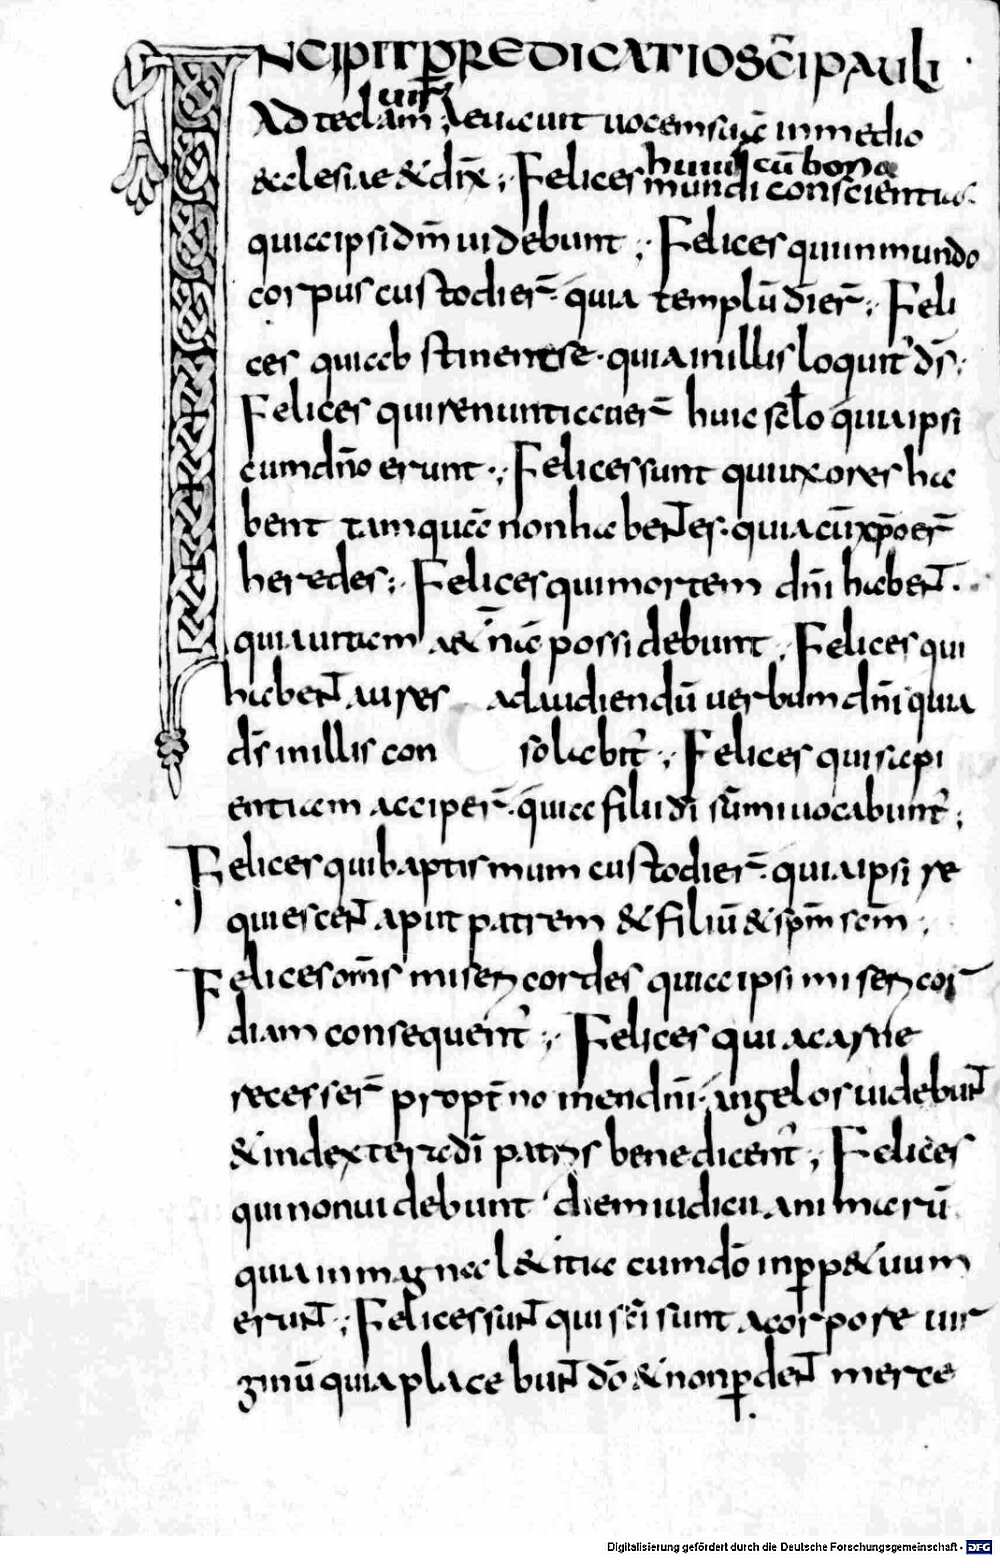 INCIPIT PREDICATIO SC̄I PAULI
Ad teclam uirḡ leuauit uocem suā in medio
& clesiae & dix̄ ; Felices mundi huius cū bona conscientias
quia ipsi dm̄ uidebunt ; Felices qui inmundo
corpus custodier̄ · quia templū dī er̄ ; Feli
ces qui abstinent se · quia in illis loquit̄ ds̄ ;
Felices qui renuntiauer̄ huic sclō quia ipsi
cum dn̄o erunt ; Felices sunt qui uxores ha
bent tamquā non habentes · quia cū xp̄o er̄
heredes ; Felices qui mortem dn̄i habent ·
quia uitam a&̄nā possidebunt ; Felices qui
habent aures ad audiendū uerbum dn̄i quia
ds̄ in illis con solabit̄ ; Felices qui sapi
entiam acciper̄ · quia filii dī sūmi uocabunt̄ ;
Felices qui baptismum custodier̄ · quia ipsi re
quiescent aput patrem & filiū & spm̄ scm̄ ;
Felices om̄s misericordes quia ipsi misericor
diam consequent̄ ; Felices qui a carne
recesser̄ propt̄ nomen dn̄i · angelos uidebunt
& in dextera dī patris benedicent̄ ; Felices
qui non uidebunt diem iudicii animarū
quia in magna l&itia cum dō in perp&uum
erunt ; Felices sunt qui sc̄i sunt a corpore uir
ginū quia placebunt dō & non perdent merce
Digitalisierung gefördert durch die Deutsche Forschungsgemeinschaft - DFG